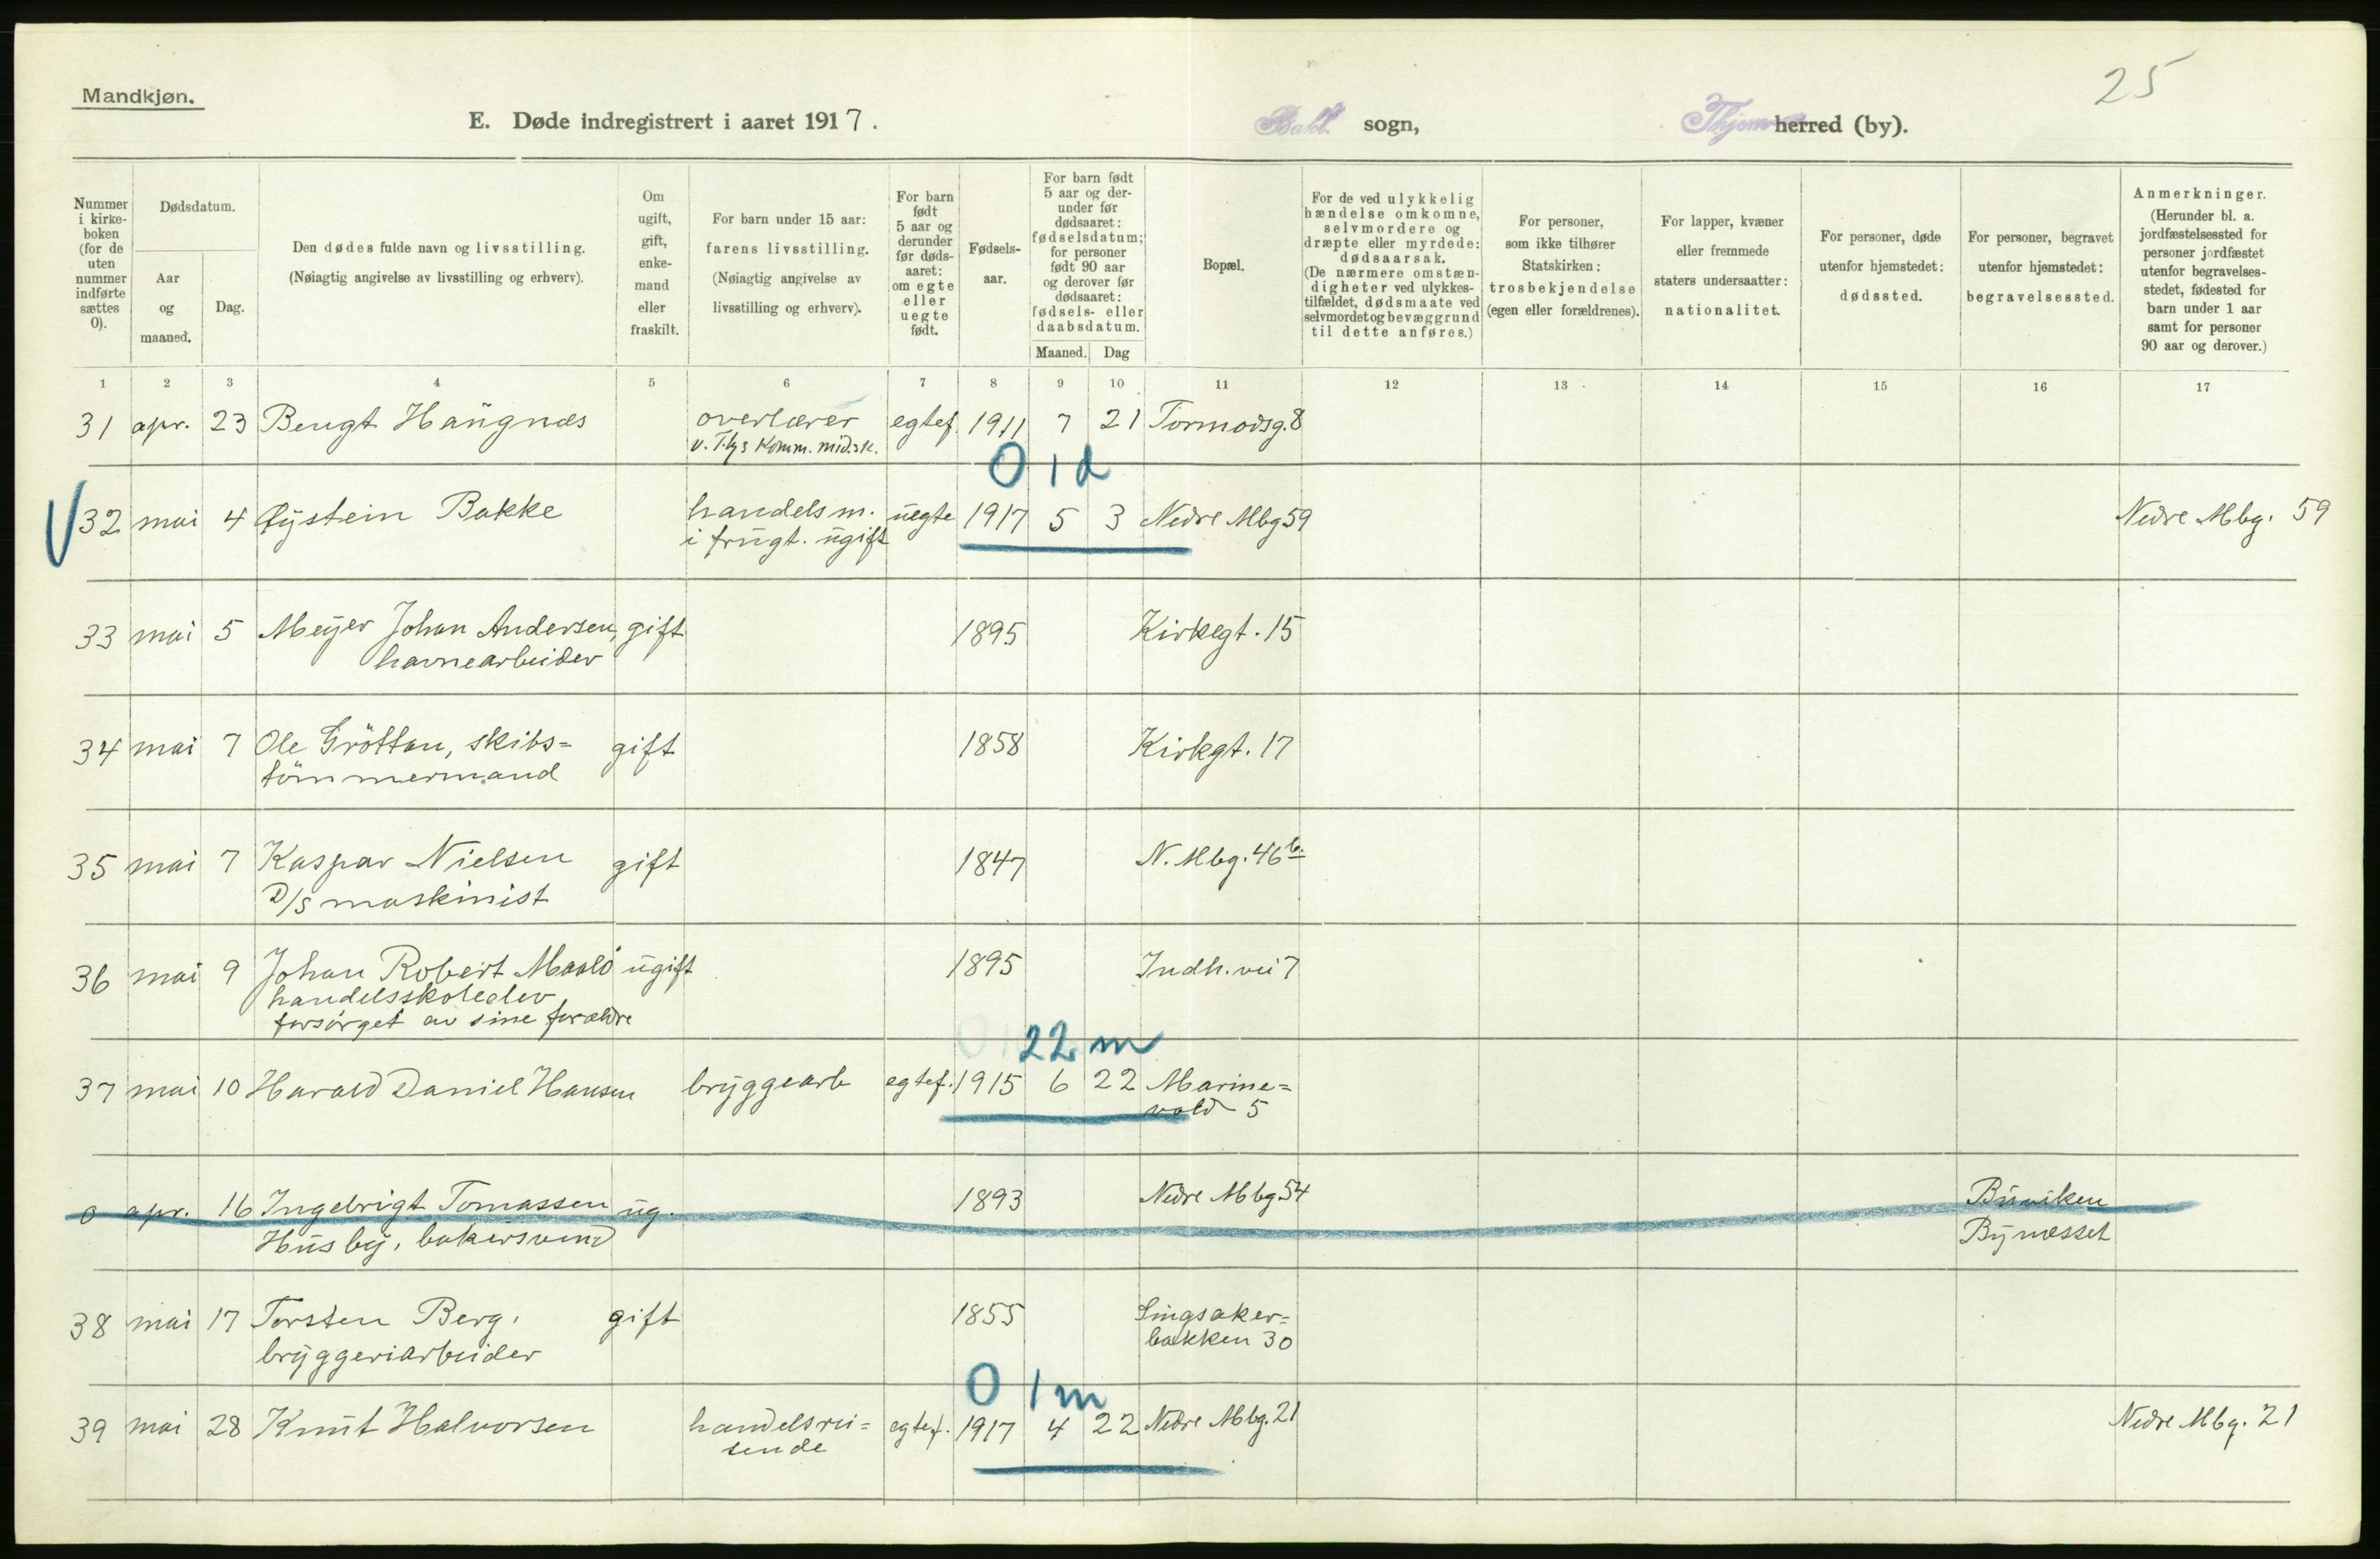 25
Mandkjøn.
E. Døde indregistrert i aaret 1917.
Bakl. sogn,
Thjem herred (by).
Nummer i kirke-boken (for de uten nummer indførte sættes 0).
Dødsdatum.
Aar og maaned.
Dag.
Den dødes fulde navn og livsstilling.
(Nøiagtig angivelse av livsstilling og erhverv).
Om ugift, gift, enke-mand eller fraskilt.
For barn under 15 aar:
farens livsstilling.
(Nøiagtig angivelse av livsstilling og erhverv).
For barn født 5 aar og derunder før døds-aaret: om egte eller uegte født.
Fødsels-aar.
For barn født 5 aar og der-under før dødsaaret: fødselsdatum; for personer født 90 aar og derover før dødsaaret: fødsels- eller daabsdatum.
Maaned. Dag
Bopæl.
For de ved ulykkelig hændelse omkomne, selvmordere og dræpte eller myrdede: dødsaarsak.
(De nærmere omstæn-digheter ved ulykkes-tilfældet, dødsmaate ved selvmordet og bevæggrund til dette anføres.)
For personer, som ikke tilhører Statskirken: trosbekjendelse (egen eller forældrenes).
For lapper, kvæner eller fremmede staters undersaatter: nationalitet.
For personer, døde utenfor hjemstedet: dødssted.
For personer, begravet utenfor hjemstedet: begravelsessted.
Anmerkninger.
(Herunder bl. a. jordfæstelsessted for personer jordfæstet utenfor begravelses-stedet, fødested for barn under 1 aar samt for personer 90 aar og derover.)
1 2 3 4 5 6 7 8 9 10 11 12 13 14 15 16 17
31 apr. 23 Bengt Haugnæs overlærer egtef. 1911 7 21 Tormodsg. 8
v. T.hjs Komm. mid.sk.
0 1 d
32 mai 4 Øystein Bakke handelsm. uegte 1917 5 3 Nedre Mbg 59 Nedre Mbg. 59
i frugt. ugift
33 mai 5 Meyer Johan Andersen, gift 1895 Kirkegt. 15
havnearbeider
34 mai 7 Ole Gröttan, skibs= gift 1858 Kirkgt. 17
tömmermand
35 mai 7 Kaspar Nielsen gift 1847 N. Mbg. 46 b.
D/S maskinist
36 mai 9 Johan Robert Maalö ugift 1895 Indh. vei 7
handelsskoleelev
forsörget av sine forældre
22 m
37 mai 10 Harald Daniel Hansen bryggearb egtef. 1915 6 22 Marine=
vold 5
0 apr. 16 Ingebrigt Tomassen ug. 1893 Nedre Mbg 54 Buviken
Husby, bakersvend Bynesset
38 mai 17 Torsten Berg, gift 1855 Singsaker=
bryggeriarbeider bakken 30
0 1 m
39 mai 28 Knut Halvorsen handelsrei= egtef. 1917 4 22 Nedre Mbg. 21 Nedre Mbg. 21
sende